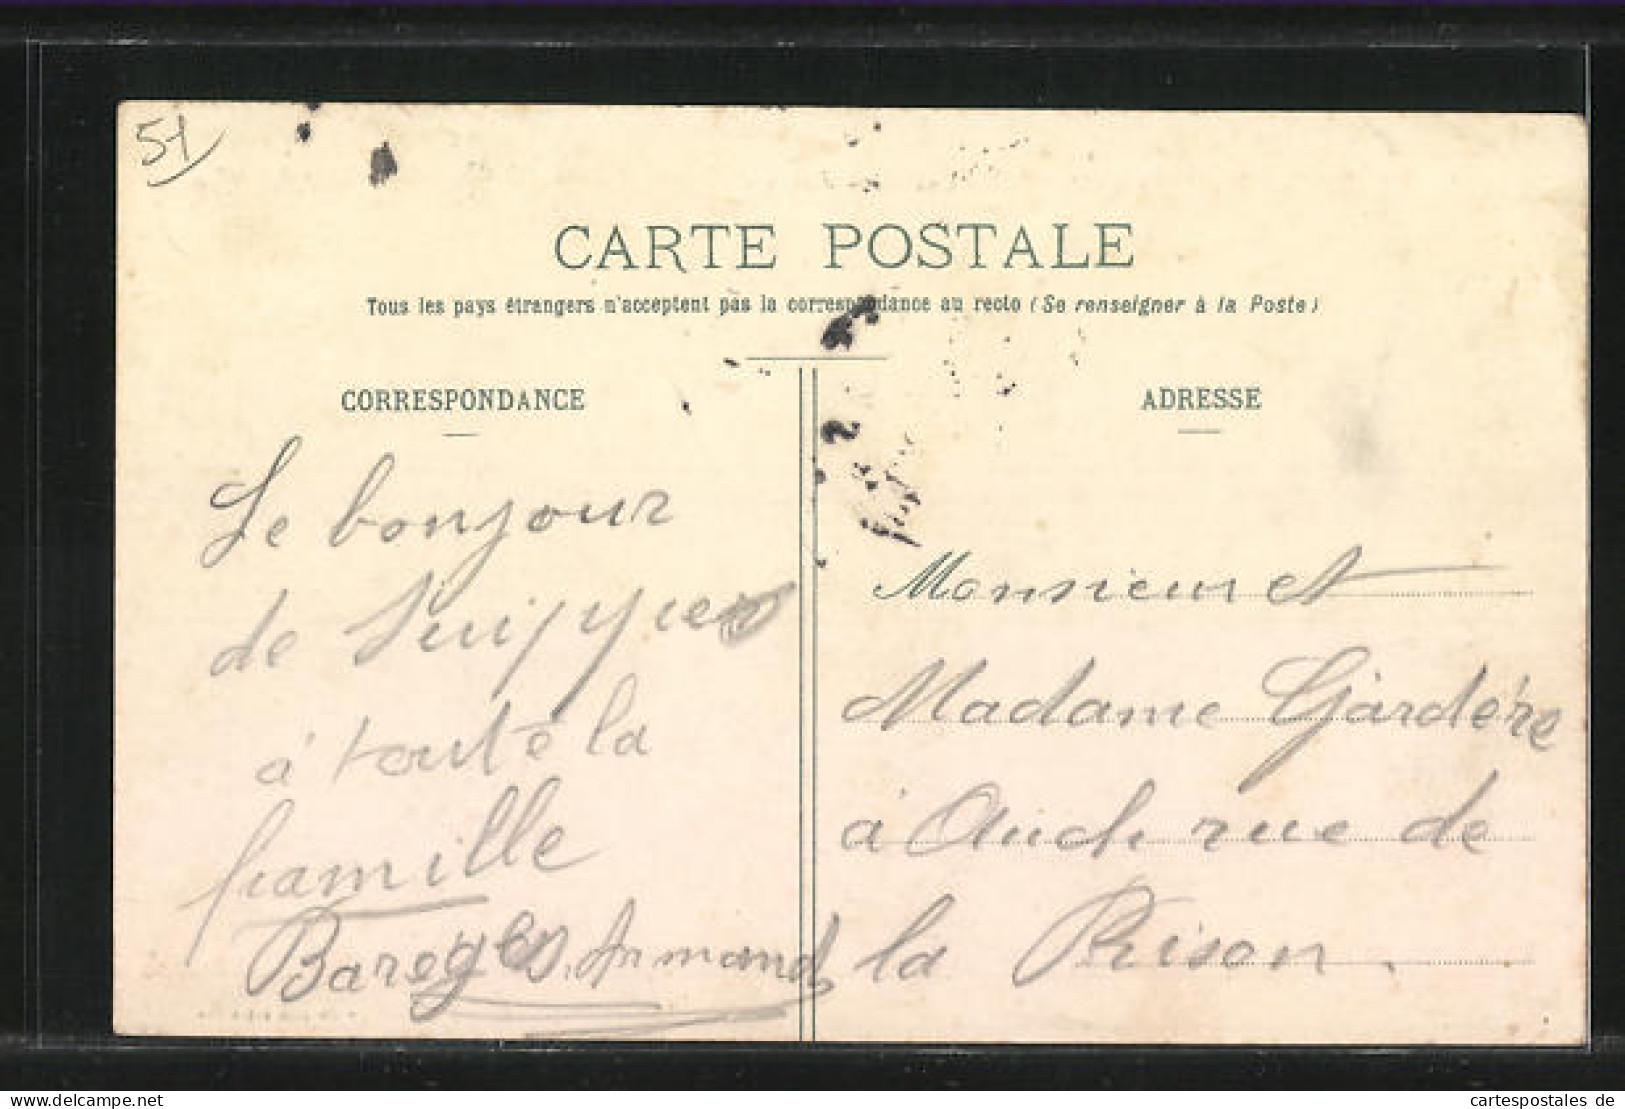 51
CARTE POSTALE
Tous les pays étrangers n'acceptent pas la correspondance au recto (Se renseigner à la Poste)
CORRESPONDANCE
Le bonjour
de Suippes
à toute la
famille
Bareges Armand
ADRESSE
Monsieur et
Madame Gardère
à Auch rue de
la Prison.
delcampe.net
cartespostales de